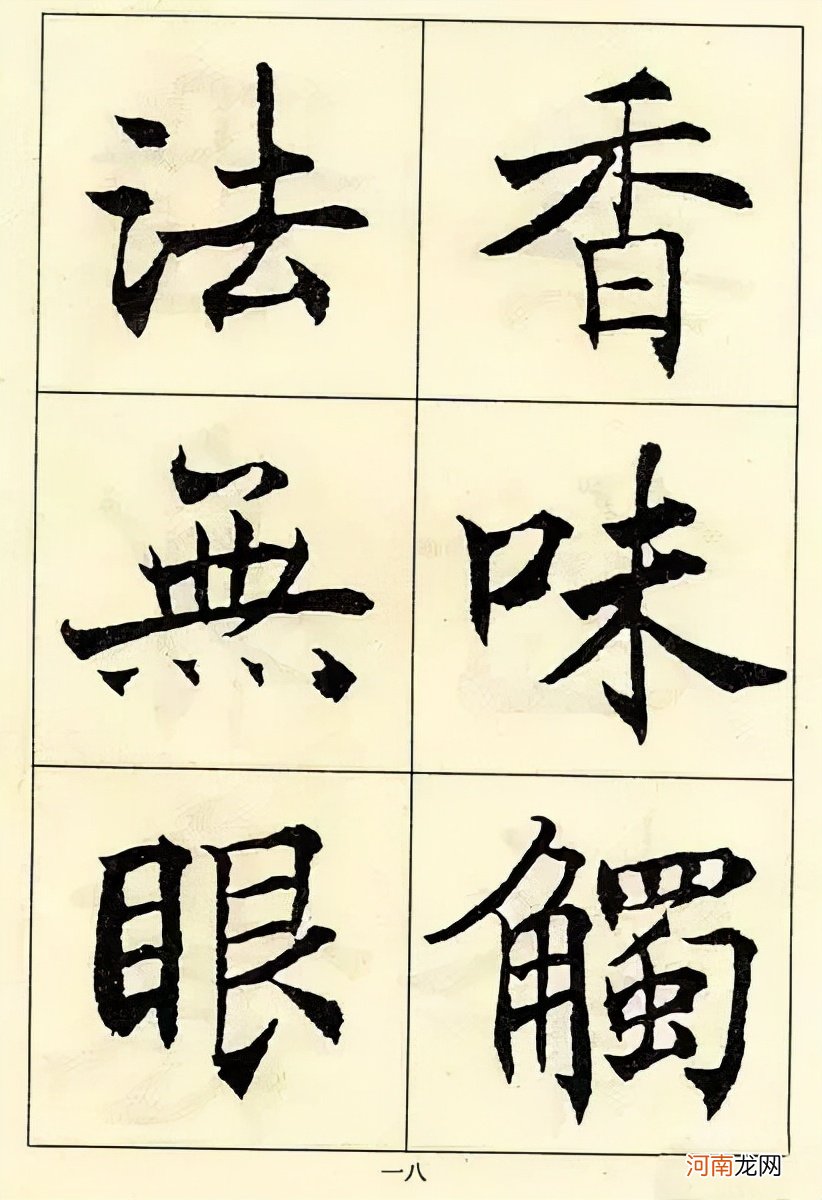 香味觸
法無眼
一八
河南龙网